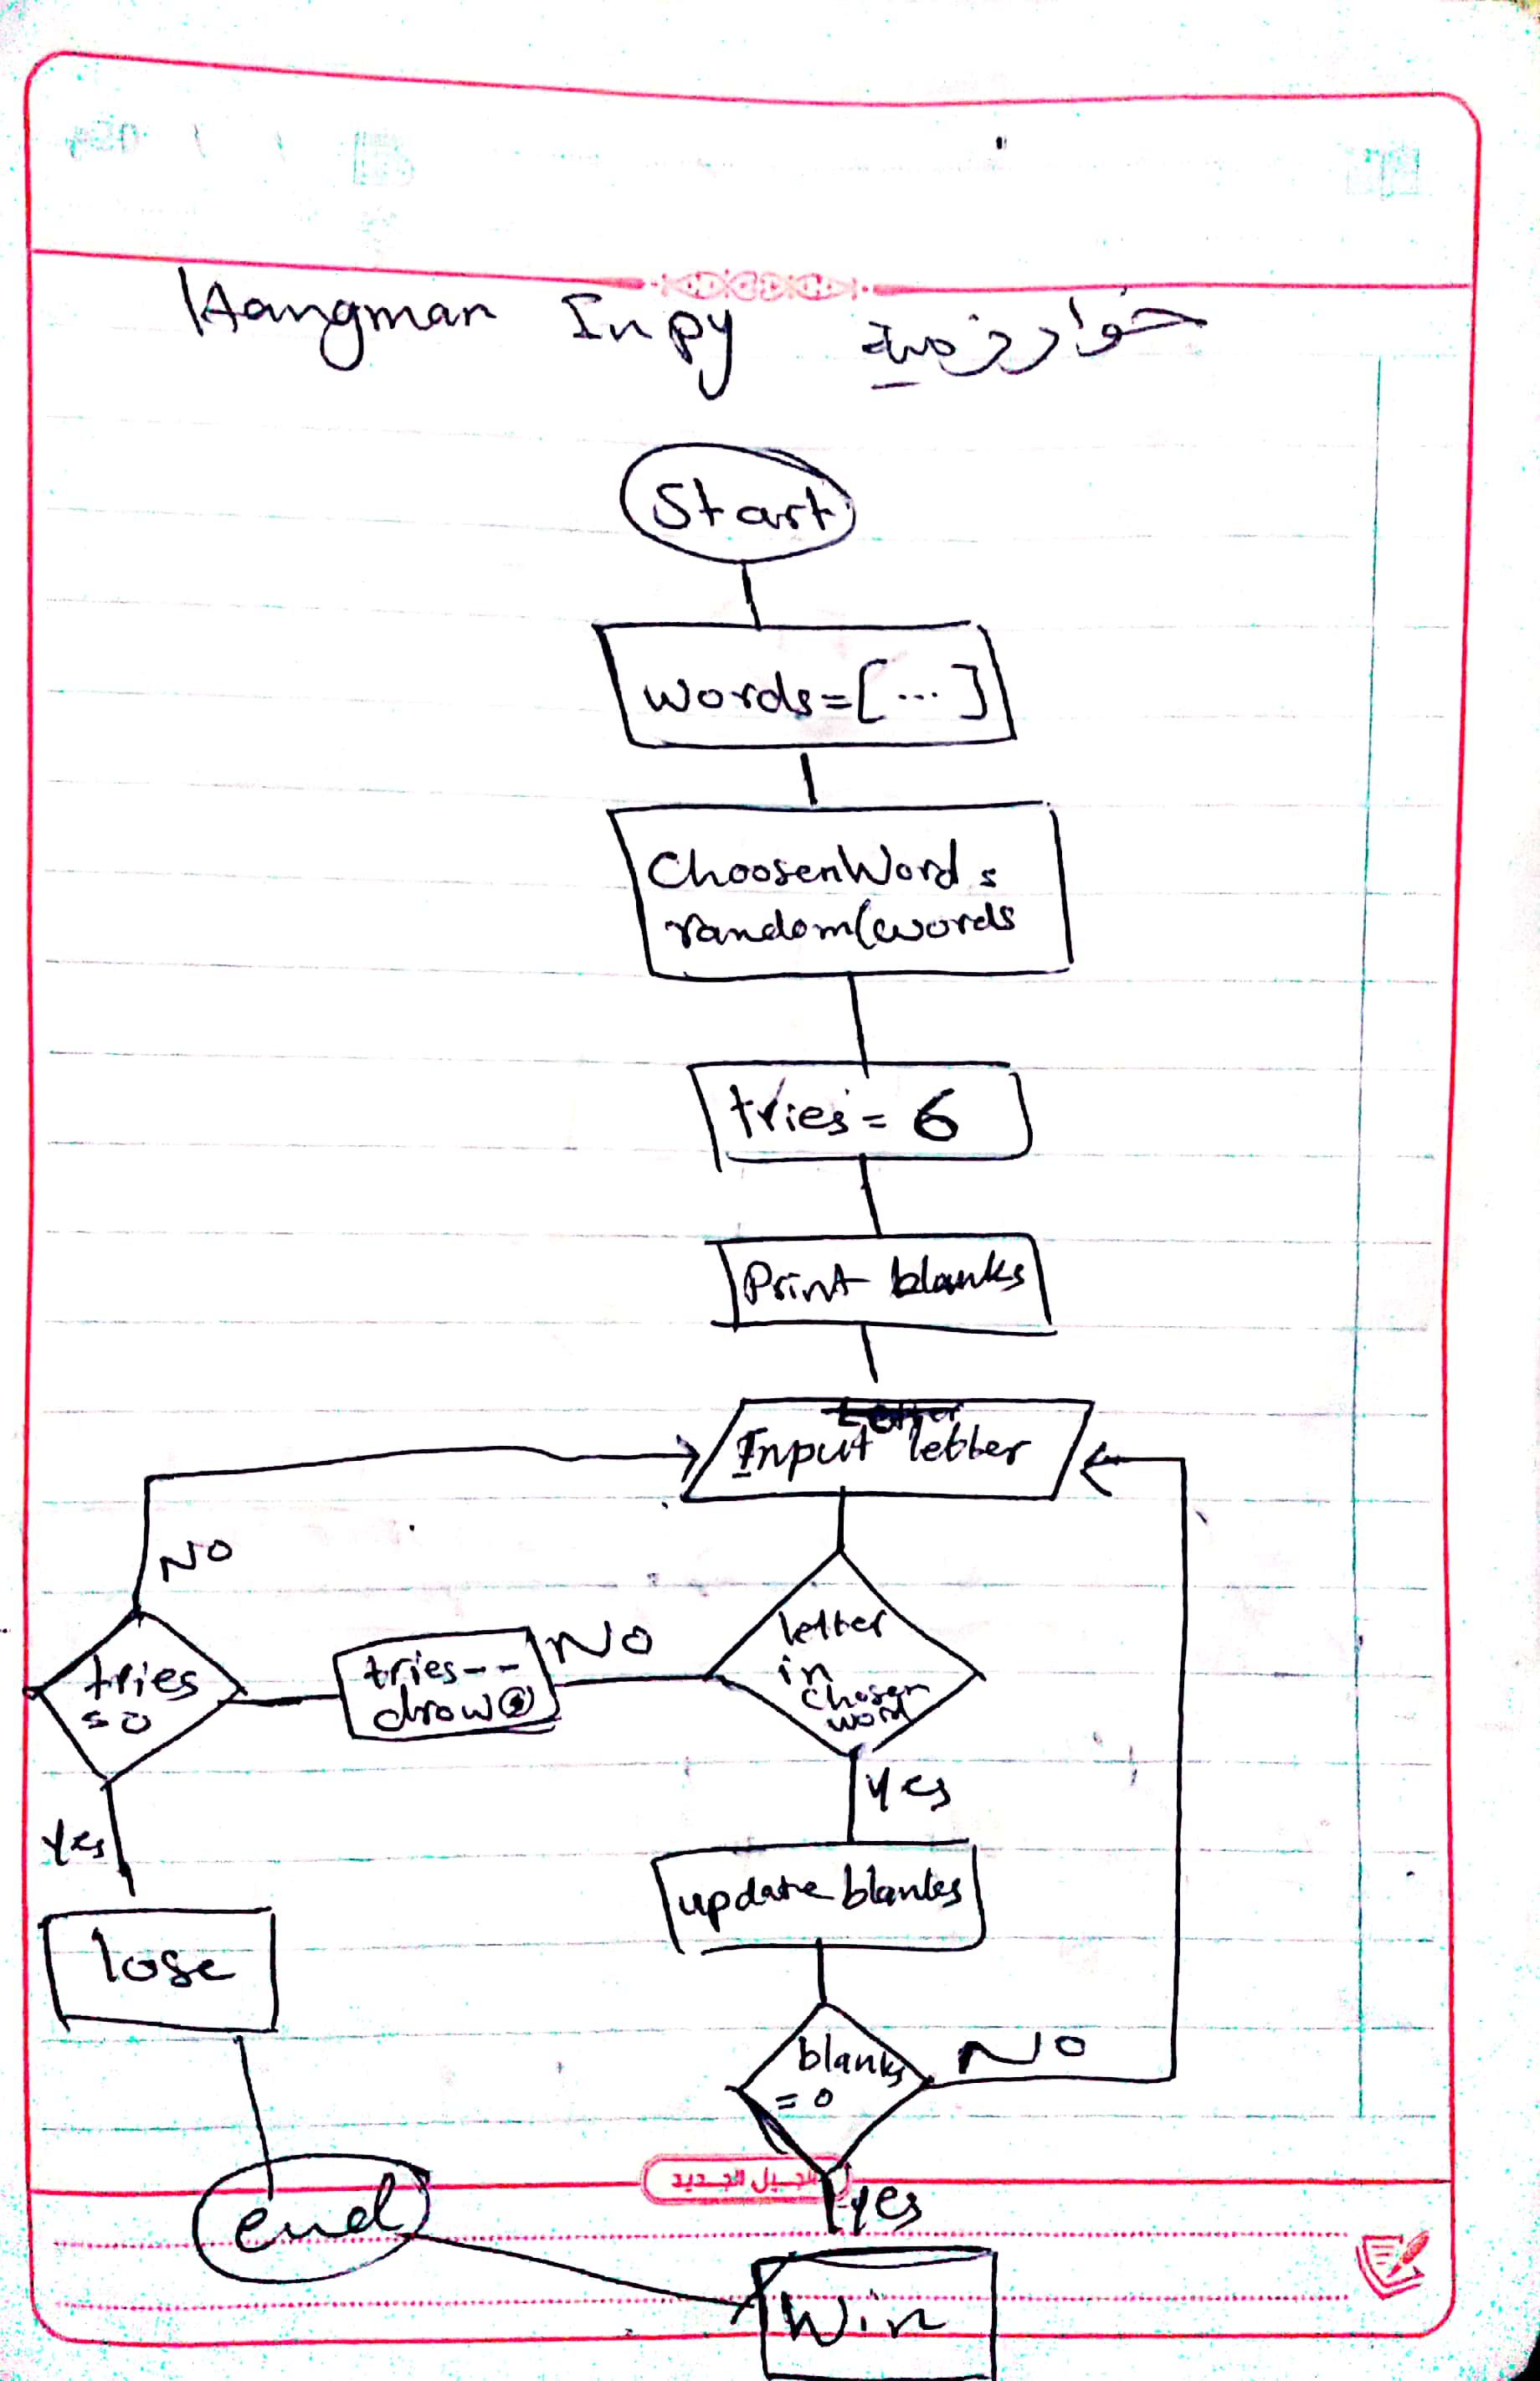 Hangman In py خوارزمية
Start
words=[...]
ChoosenWord =
random(words
tries = 6
Print blanks
Input letter
NO
letter
in
chosen
word
NO
tries--
draw
tries
= 0
yes
yes
update blanks
lose
blanks
= 0
NO
الجيل الجديد
yes
end
Win